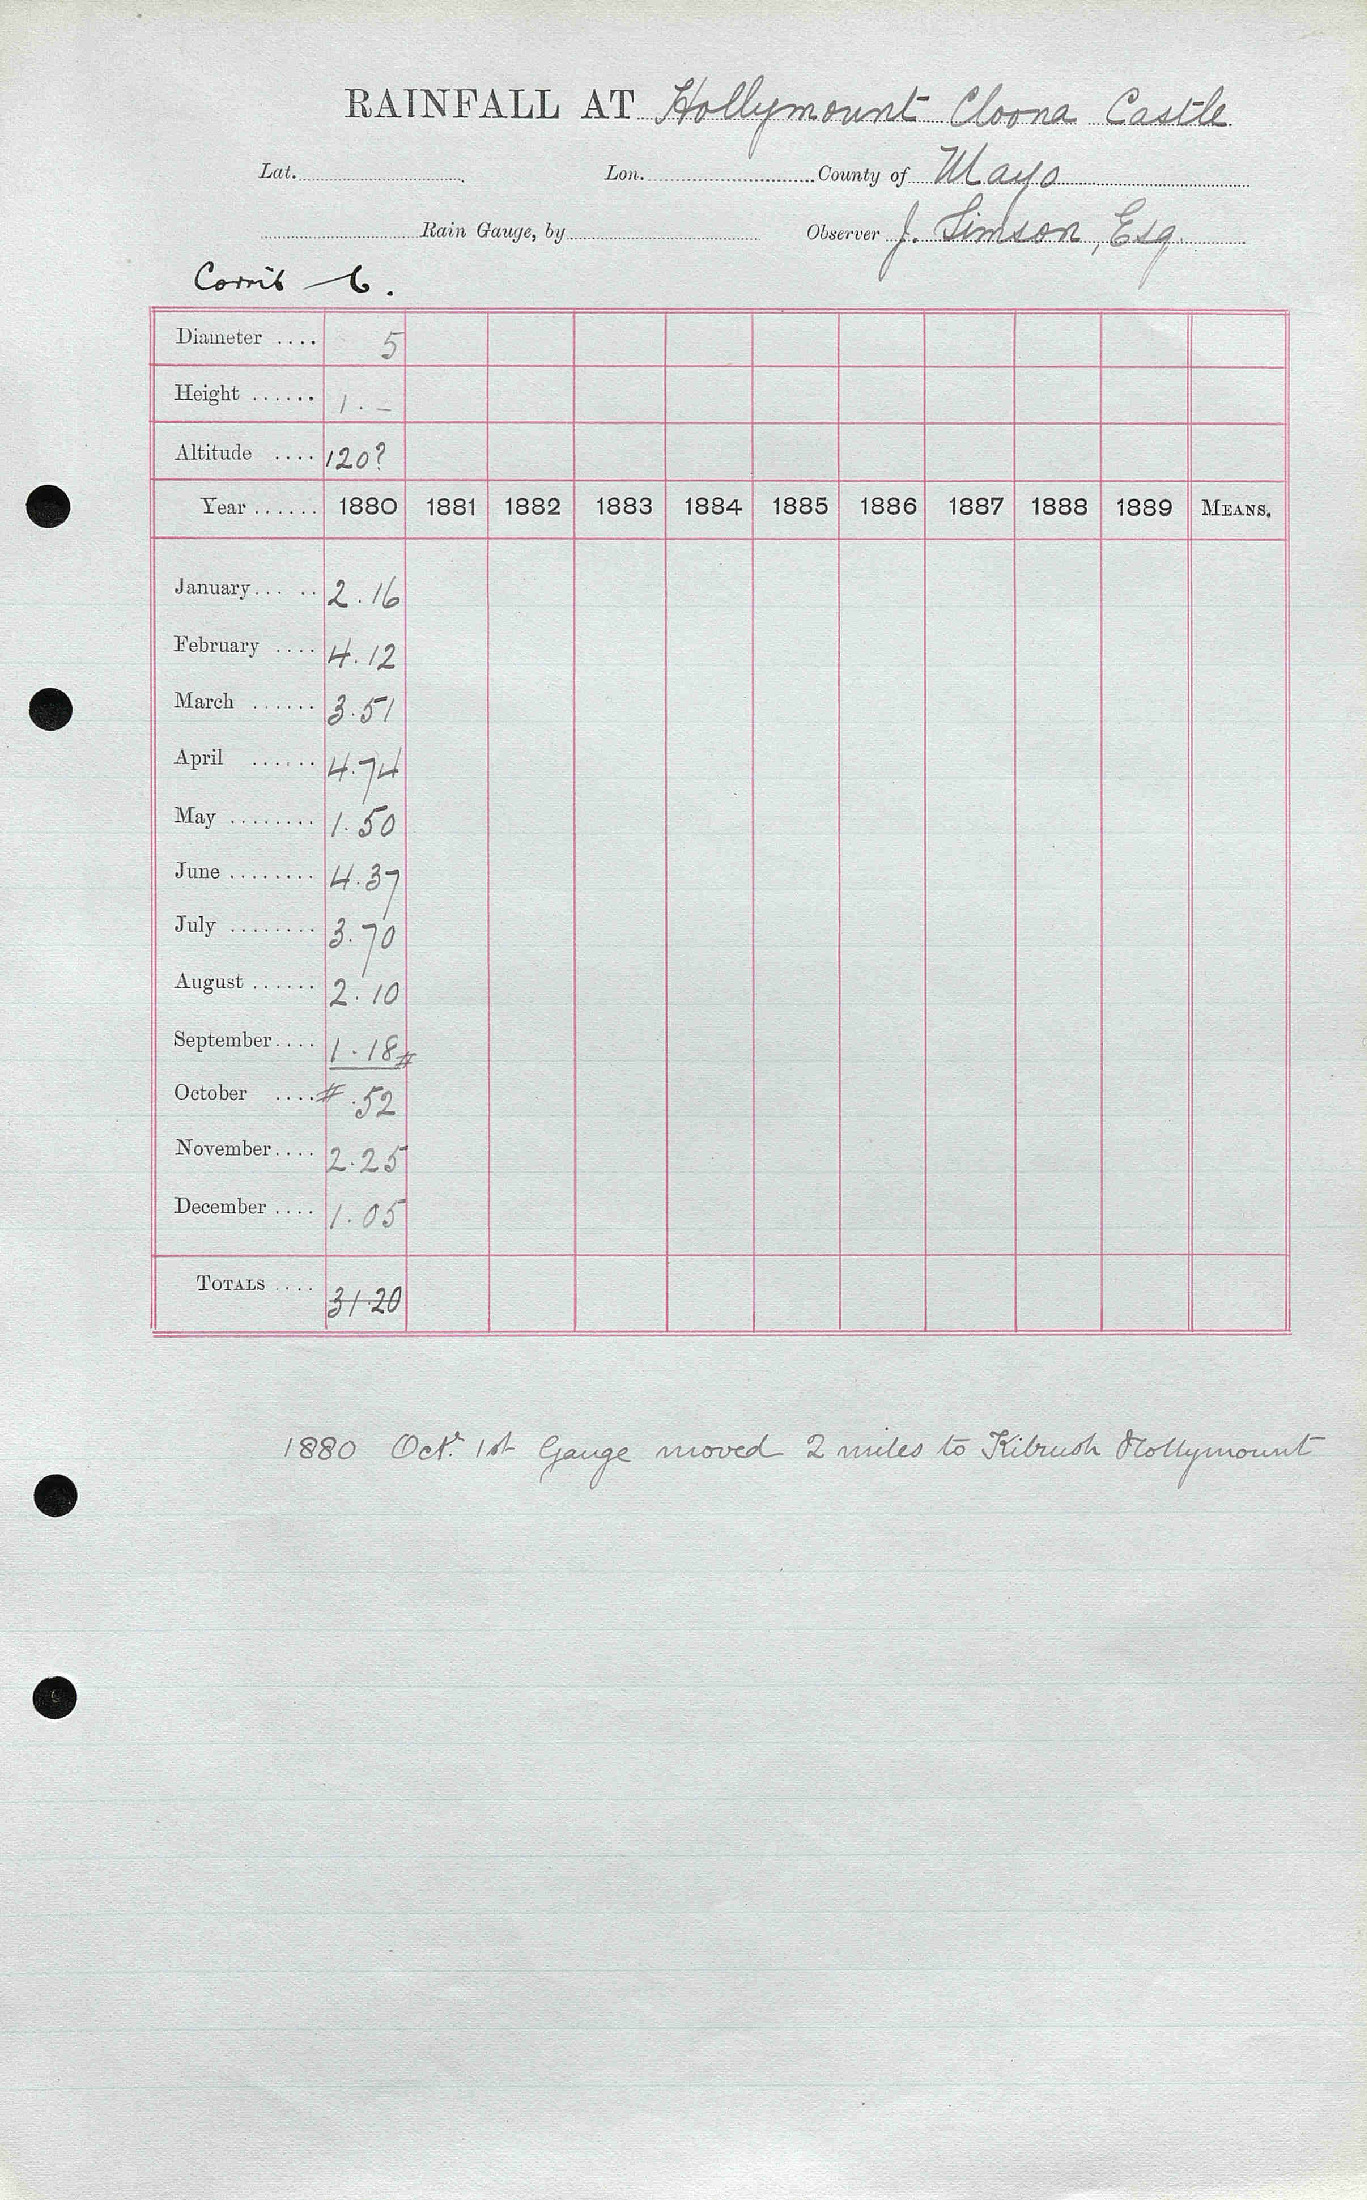 RAINFALL AT Hollymount Cloona Castle
Lat. Lon. County of Mayo
Rain Gauge, by Observer J. Simson, Esq.
Corrib
Diameter .... 5
Height ...... 1 . –
Altitude .... 120?
Year ...... 1880 1881 1882 1883 1884 1885 1886 1887 1888 1889 MEANS.
January... .. 2.16
February .... 4.12
March ...... 3.51
April ...... 4.74
May ........ 1.50
June ........ 4.37
July ........ 3.70
August ...... 2.10
September.... 1.18#
October .... # .52
November.... 2.25
December .... 1.05
TOTALS .... 31.20
1880 Octr. 1st Gauge moved 2 miles to Kilrush Hollymount